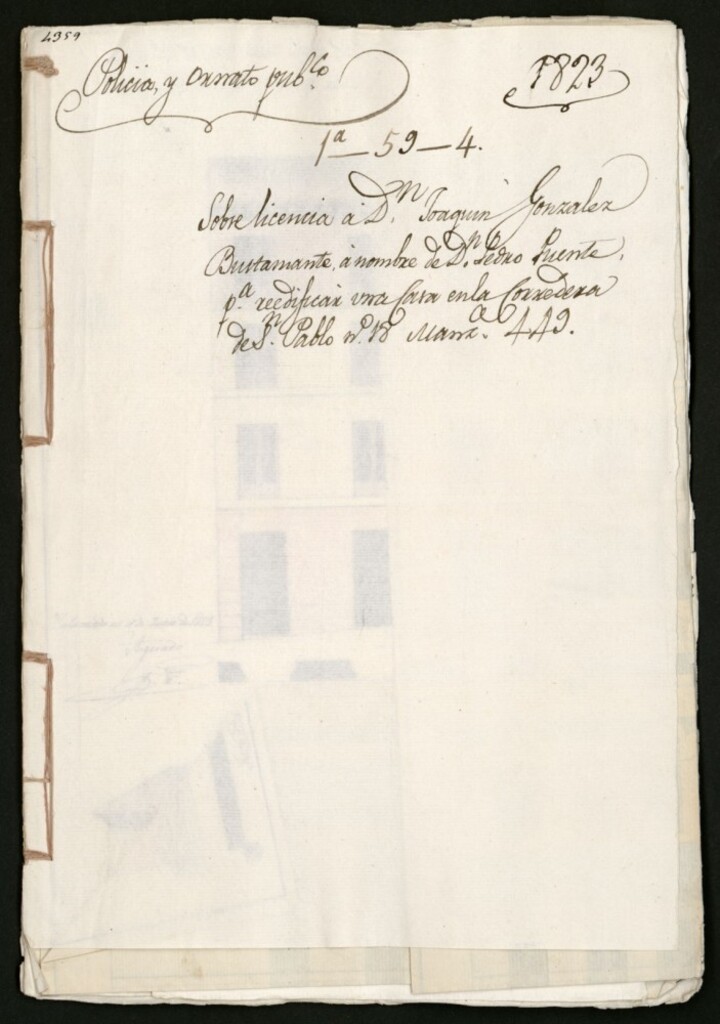 4359
Policia, y Ornato pubco
1823
1ª — 59 — 4.
Sobre licencia á Dn. Joaquin Gonzalez
Bustamante, á nombre de Dn. Pedro Puente,
pª. reedificar una Casa en la Corredera
de Sn. Pablo nº. 18 Manzª. 449.